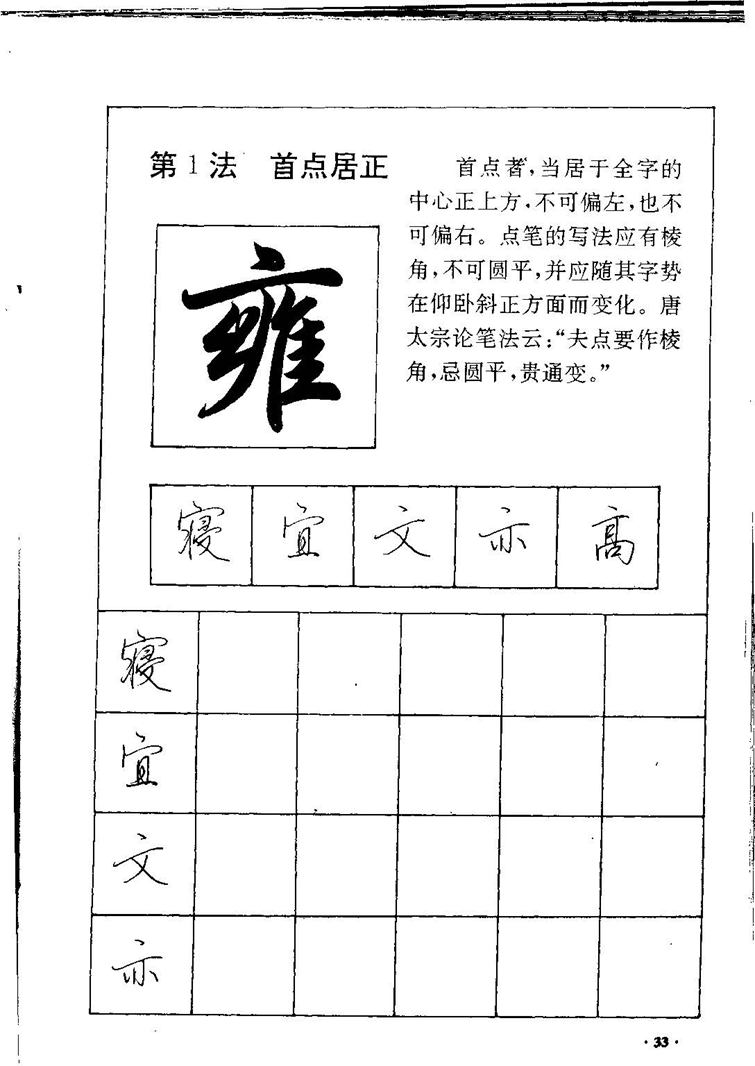 第1法 首点居正
首点者,当居于全字的
中心正上方,不可偏左,也不
可偏右。点笔的写法应有棱
角,不可圆平,并应随其字势
在仰卧斜正方面而变化。唐
太宗论笔法云:“夫点要作棱
角,忌圆平,贵通变。”
雍
寝 宜 文 亦 高
寝
宜
文
亦
·33·